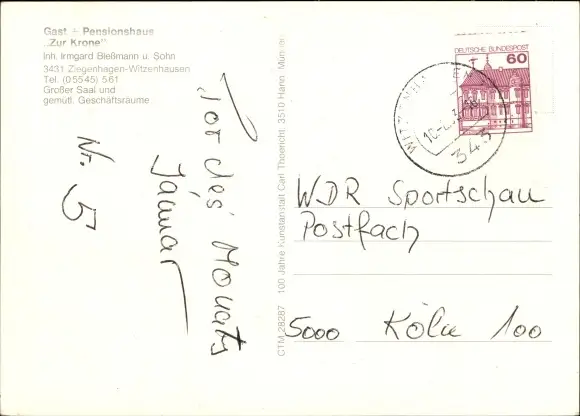 Gast - Pensionshaus
„Zur Krone"
Inh. Irmgard Bleßmann u. Sohn
3431 Ziegenhagen-Witzenhausen
Tel. (05545) 561
Großer Saal und
gemütl. Geschäftsräume
Tor des Monats
Januar
Nr. 5
CTM 28287 100 Jahre Kunstanstalt Carl Thoericht, 3510 Hann. Münden
DEUTSCHE BUNDESPOST
60
343
WDR Sportschau
Postfach
5000 Köln 100